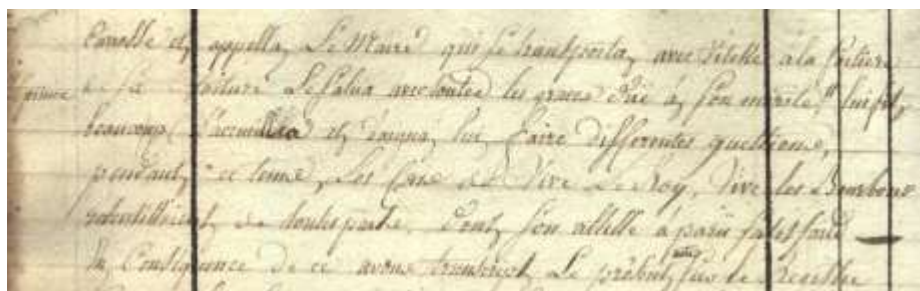 Carosse et appella Le Maire qui se transporta avec vitesse à la Portiere
de sa voiture Le salua avec toutes les graces due a son mérite Il lui fit
beaucoup d'accueil et daigna lui faire differentes questions,
pendant ce tems, Les Cris de Vive Le Roy, Vive les Bourbons
retentissoient de toutes parts. Dont son altesse à parû satisfaite
En Consequence de ce avons transcript Le présent sur le Registre